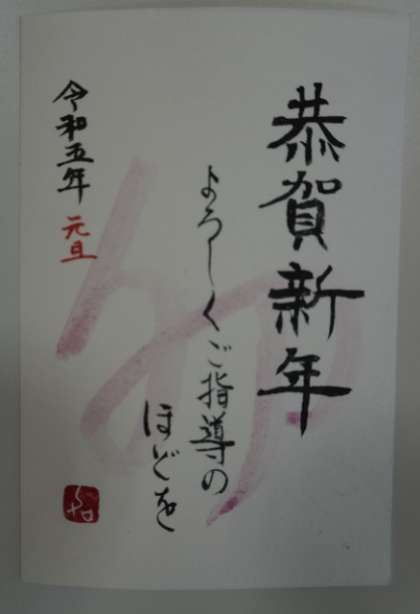 恭賀新年
よろしくご指導の
ほどを
令和五年 元旦